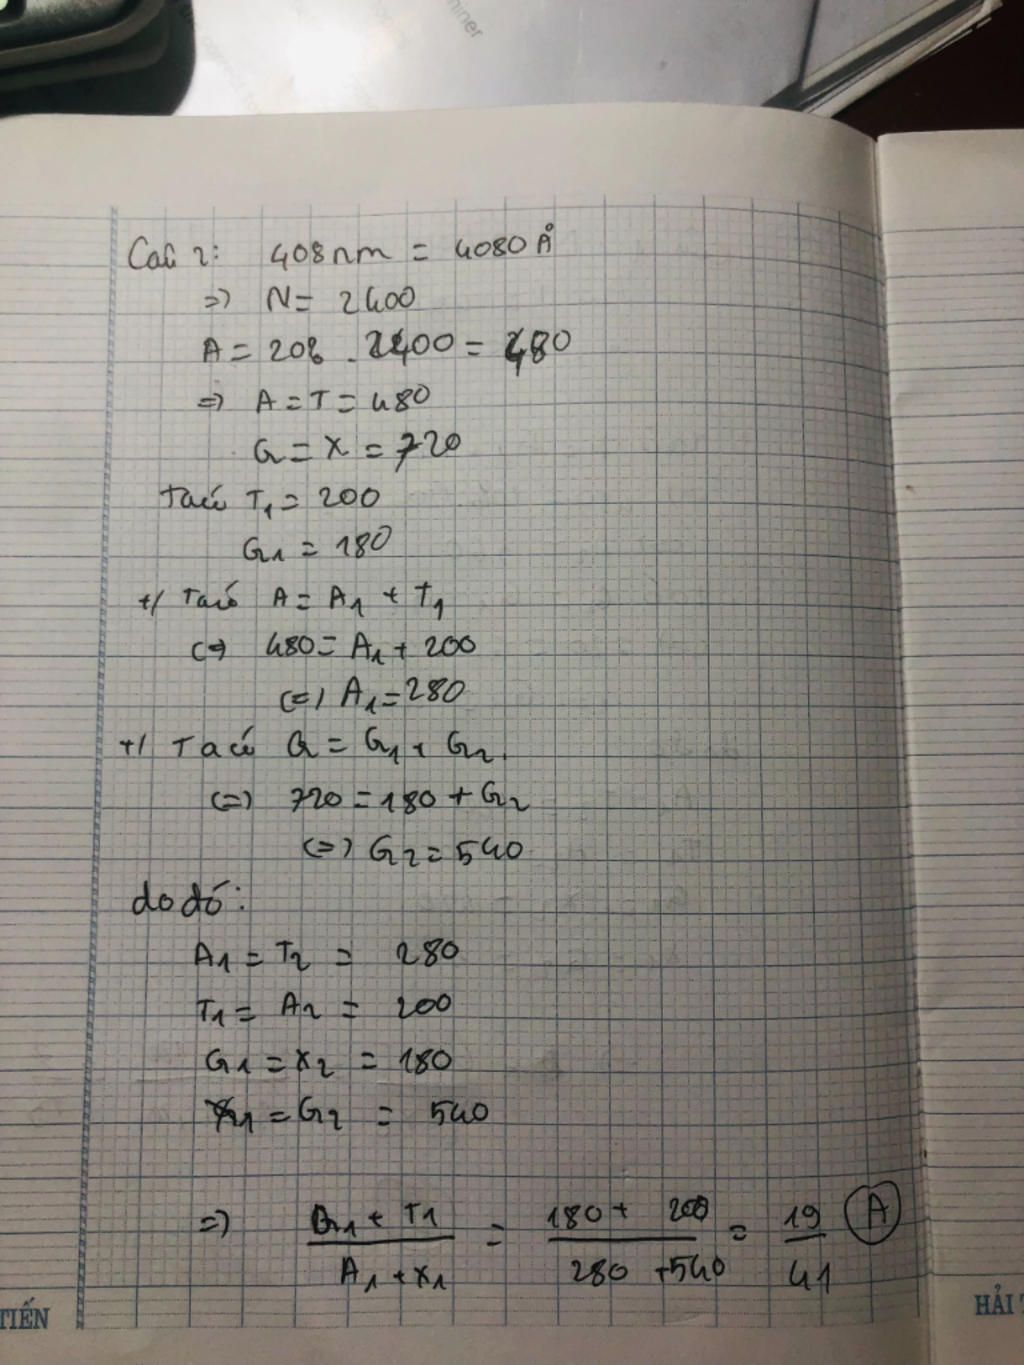 miner
Câu 2: 408nm = 4080 Å
=> N = 2400
A = 20% . 2400 = 480
=> A = T = 480
G = X = 720
Ta có T₁ = 200
G₁ = 180
+/ Ta có A = A₁ + T₁
<=> 480 = A₁ + 200
<=> A₁ = 280
+/ Ta có G = G₁ + G₂
<=> 720 = 180 + G₂
<=> G₂ = 540
do đó:
A₁ = T₂ = 280
T₁ = A₂ = 200
G₁ = X₂ = 180
X₁ = G₂ = 540
=> (G₁ + T₁)/(A₁ + X₁) = (180 + 200)/(280 + 540) = 19/41 A
TIẾN HẢI